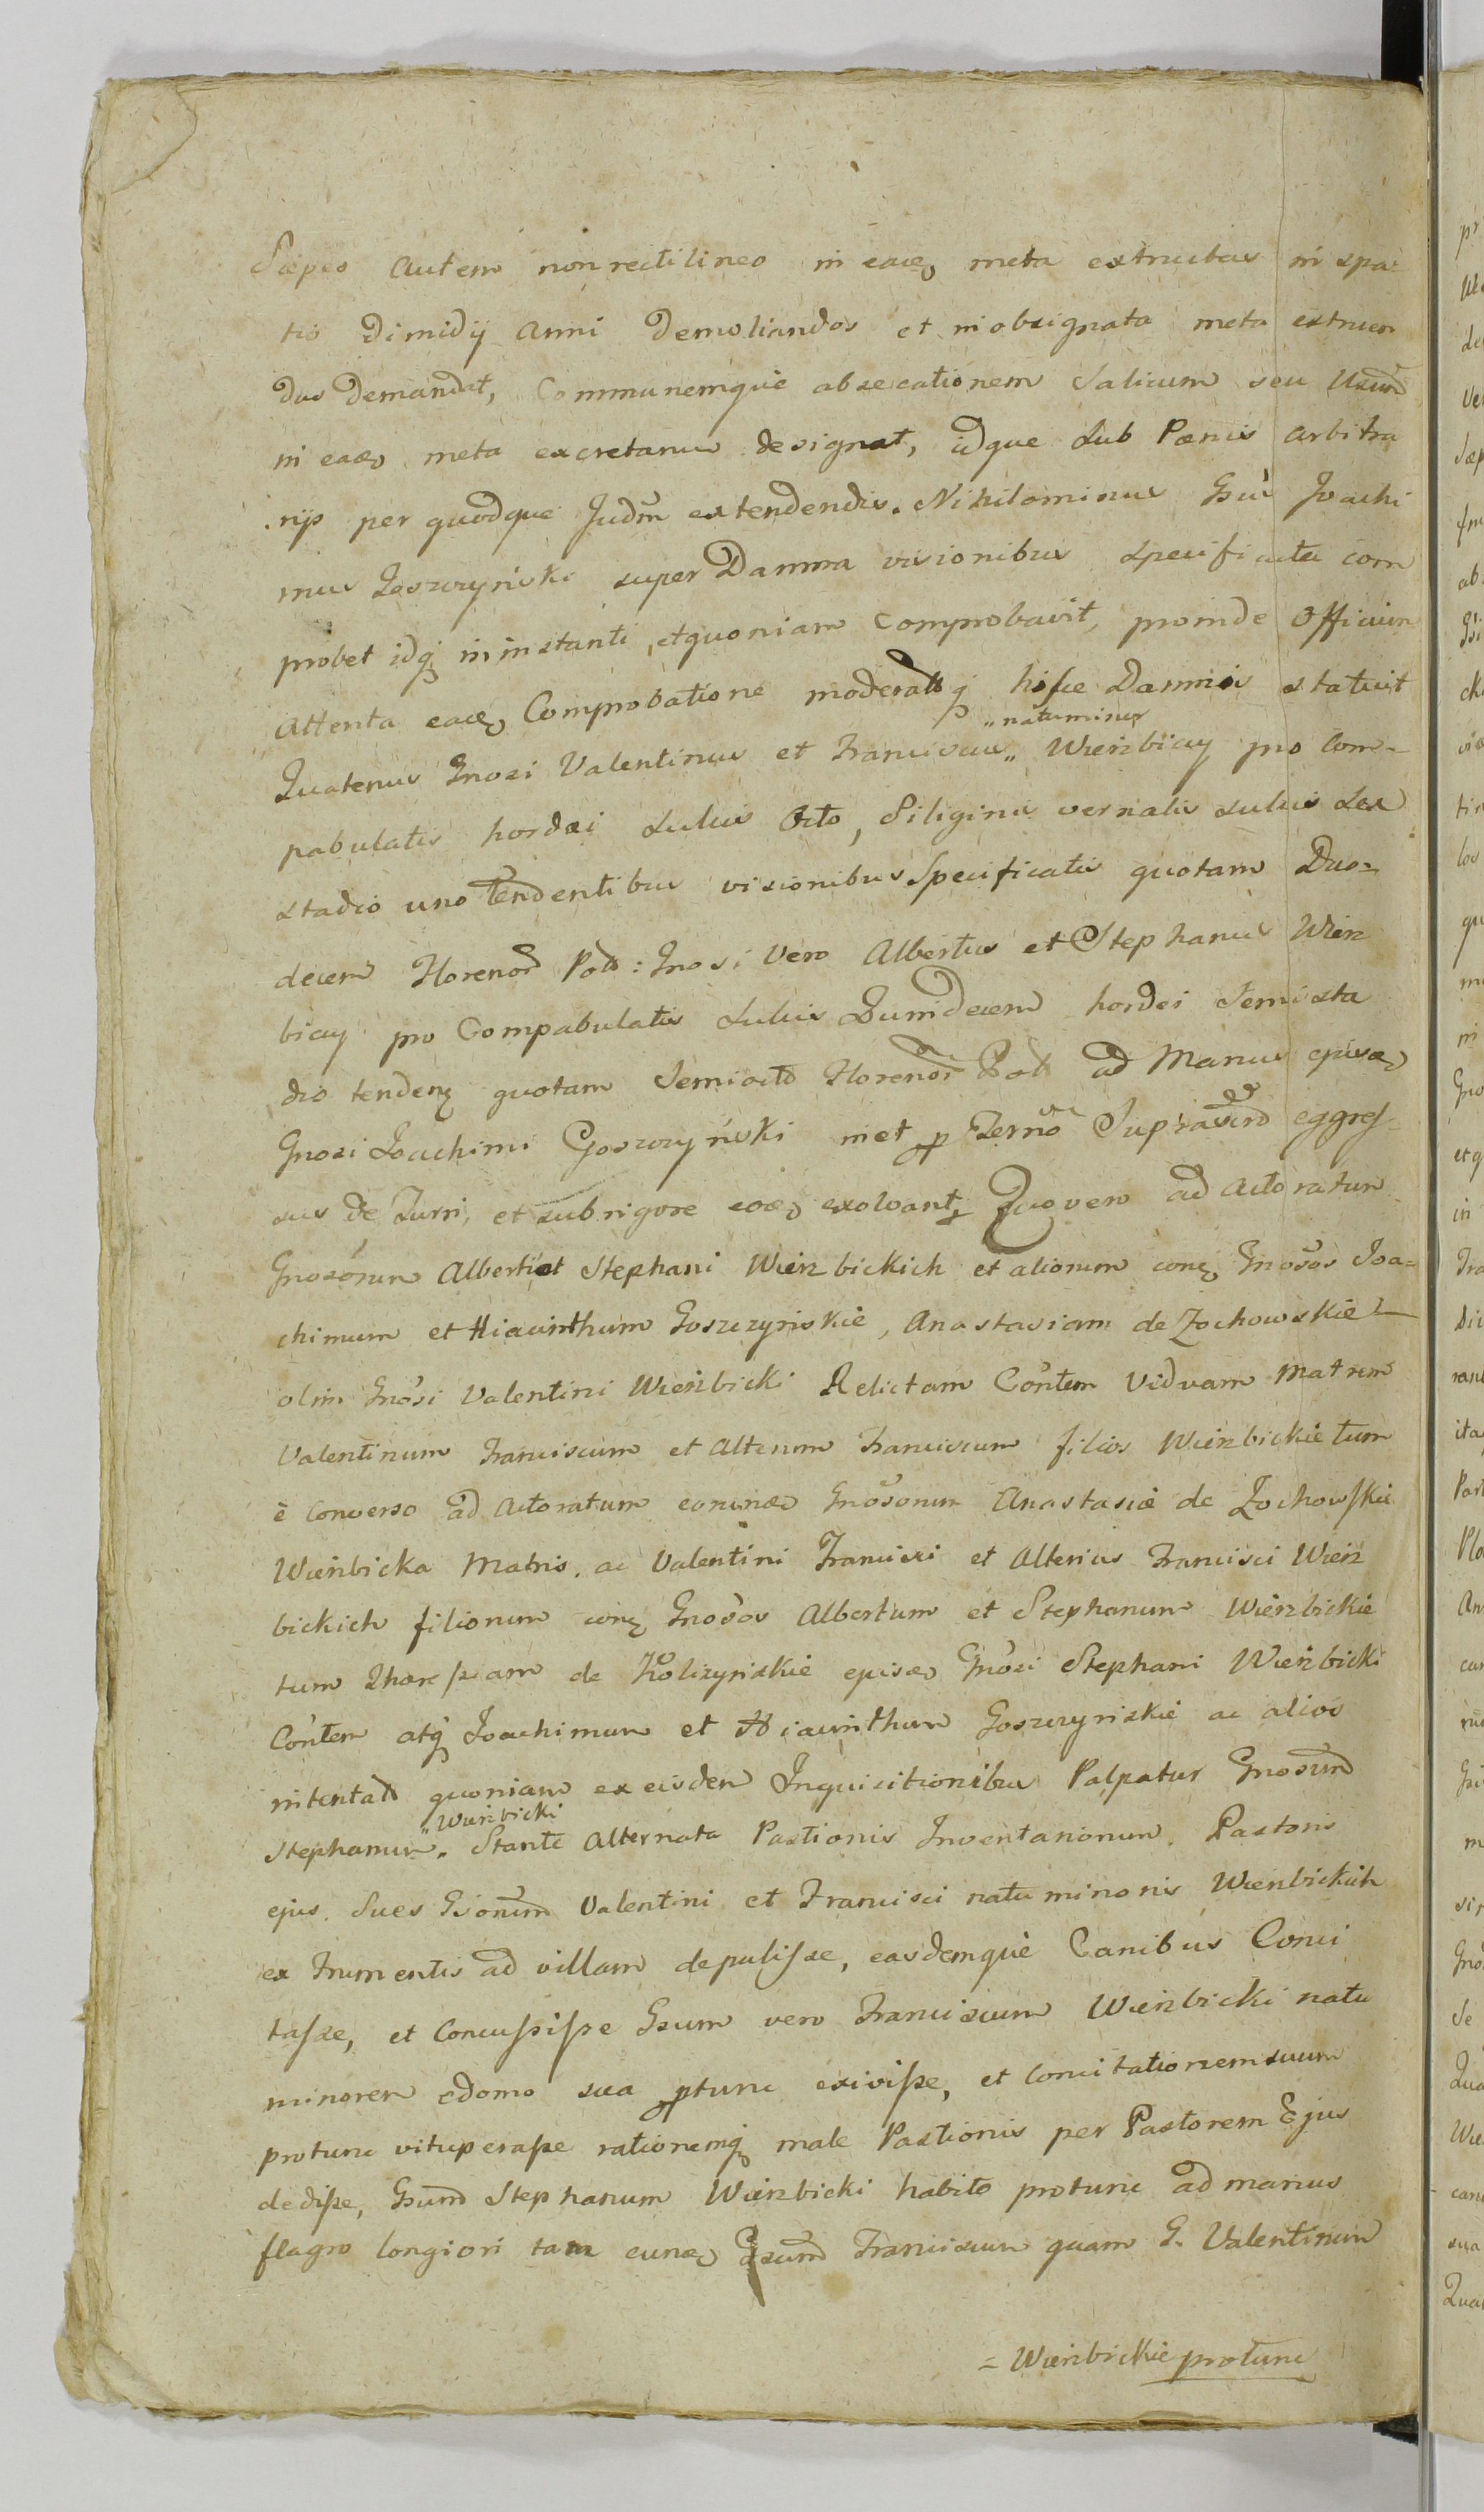 Sæpes autem non rectilineo in eadem meta extructas in spa=
tio Dimidij Anni Demoliandas et in obsignata meta extruen
das Demandat, Communemque absecationem Salicum seu Usum
in eadem meta excretarum designat, idque sub Pænis arbitra
rijs per quodque Judm extendendis. Nihilominus Gsus Joachi
mus Goszczyński super Damna visionibus specificata com
probet idq in instanti, et quoniam Comprobavit, proinde Officium
Attenta eadem Comprobatione moderatisq hisce Damnis statuit
Quatenus Gnosi Valentinus et Franciscus „natu minor„ Wierzbiccy pro Com=
pabulatis hordæi sulcis Octo, Siliginis vernalis sulcis sex
stadio uno tendentibus visionibus Specificatis quotam Duo=
decem Florenos Pol: Gnosi vero Albertus et Stephanus Wierz
biccy pro Compabulatis sulcis Quindecem hordei Semista
dio tenden quotam Semiocto Florenor Pol ad Manus ejusdem
Gnosi Joachimi Goszczyński met p Terno Supra eggres
sus de Turri, et sub rigore eodem exolvant, Quo vero ad Actoratum
Gnosorum Alberti et Stephani Wierzbickich et aliorum con Gnosos Joa=
chimum et Hiacinthum Goszczyńskie, Anastasiam de Zochowskie
olim Gnosi Valentini Wierzbicki Relictam Contem Viduam Matrem
Valentinum Franciscum et Alterum Franciscum filios Wierzbickie tum
è Converso ad Actoratum eorundem Gnosorum Anastasiæ de Zochowskie
Wierzbicka Matris, ac Valentini Francisci et Alterius Francisci Wierz
bickich filiorum con Gnosos Albertum et Stephanum Wierzbickie
tum de ejusdem Gnosi Stephani Wierzbicki
Contem atq Joachimum et Hiacinthum Goszczyńskie ac alios
intentat quoniam ex eisdem Inquisitionibus Palpatur Gnosum
Stephanum „Wierzbicki„ Stante Alternata Pastionis Inventariorum, Pastoris
ejus, Sues Gsorum Valentini et Francisci natu minoris Wierzbickich
ex Frumentis ad villam depulisse, easdemque Canibus Conci
tasse, et Concussisse Gsum vero Franciscum Wierzbicki natu
minorem edomo sua ptunc exivisse, et Concitationem suum
protunc vituperasse rationemq male Pastionis per Pastorem Ejus
dedisse, Gsum Stephanum Wierzbicki habito protunc ad manus
flagro longiori tam eundem Gsum Franciscum quam G. Valentinum
= Wierzbickie protunc